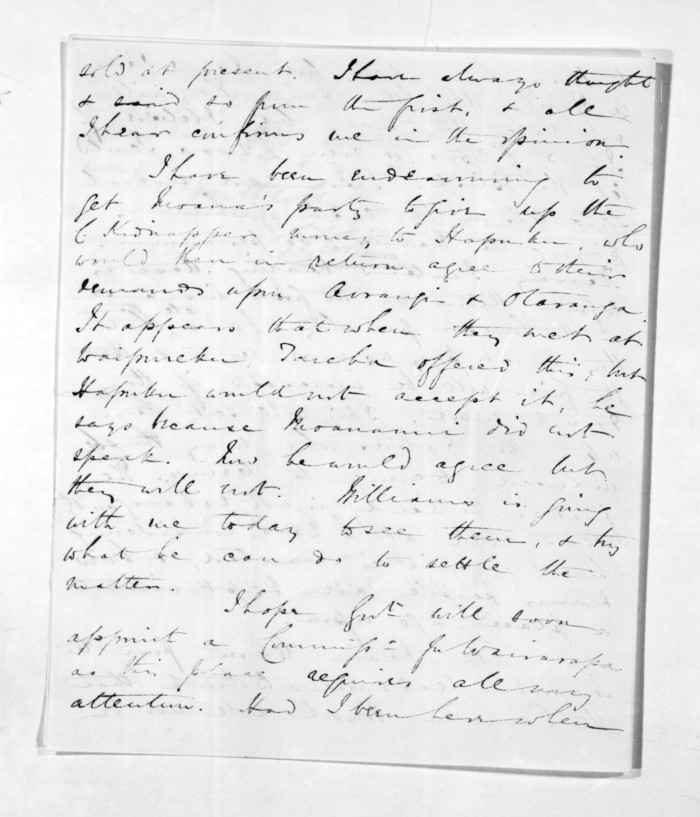 sold at present. I have always thought
& said so from the first, & all
I hear confirms me in the opinion.
I have been endeavouring to
get Moanui's party to give up the
C Kidnappers money to Hapuku, who
would then in return agree to their
demands upon & Otaranga.
It appears that when they met at
Waipukurau, Tareha offered this, but
Hapuku would not accept it, he
says because Moananui did not
speak. Now he would agree but
they will not. Williams is going
with me today to see them, & try
what he can do to settle the
matter.
I hope Govt will soon
appoint a Commissr for Wairarapa
as this place requires all my
attention. Had I been here when